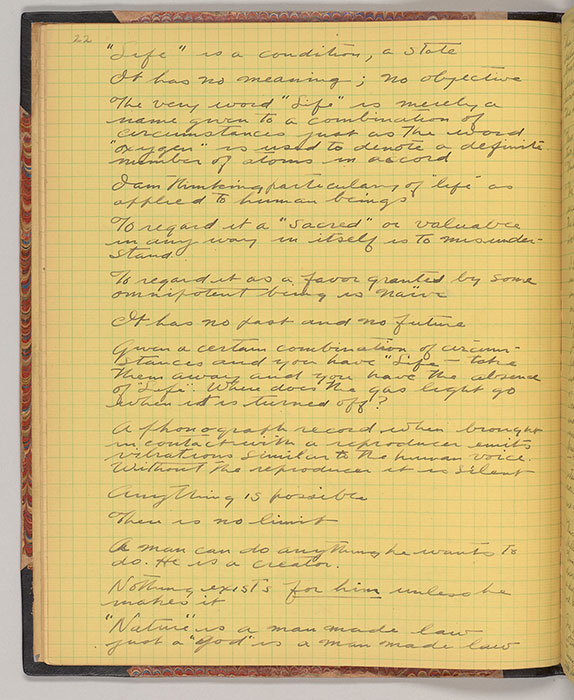 22
"Life" is a condition, a state
It has no meaning; no objective
The very word "Life" is merely a
name given to a combination of
circumstances just as the word
"oxygen" is used to denote a definite
number of atoms in accord
I am thinking particularly of "life" as
applied to human beings
To regard it a "sacred" or valuable
in any way in itself is to misunder-
stand.
To regard it as a favor granted by some
omnipotent being is naïve
It has no past and no future
Given a certain combination of circum-
stances and you have "Life" – take
them away and you have the absence
of "Life". Where does the gas light go
when it is turned off?
A phonograph record when brought
in contact with a reproducer emits
vibrations similar to the human voice.
Without the reproducer it is silent
Anything is possible
There is no limit
A man can do anything he wants to
do. He is a creator.
Nothing exists for him unless he
makes it
"Nature" is a man made law
just a "God" is a man made law